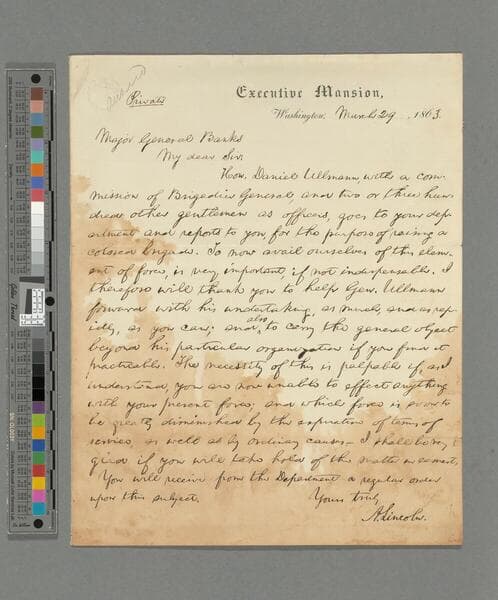 Private
Executive Mansion,
Washington, March 29, 1863.
Major General Banks
My dear Sir:
Hon. Daniel Ullmann, with a com-
mission of Brigadier General, and two or three hun-
dred other gentlemen as officers, goes to your dep-
artment and reports to you, for the purpose of raising a
colored brigade. To now avail ourselves of this elem-
ent of force, is very important, if not indispensable. I
therefore will thank you to help Gen. Ullmann
forward with his undertaking, as much, and as rap-
idly, as you can; and also to carry the general object
beyond his particular organization if you find it
practicable. The necessity of this is palpable if, as I
understand, you are now unable to effect anything
with your present force; and which force is soon to
be greatly diminished by the expiration of terms of
service, as well as by ordinary causes. I shall be very
glad if you will take hold of the matter in earnest.
You will receive from the Department a regular order
upon this subject.
Yours truly
A. Lincoln.